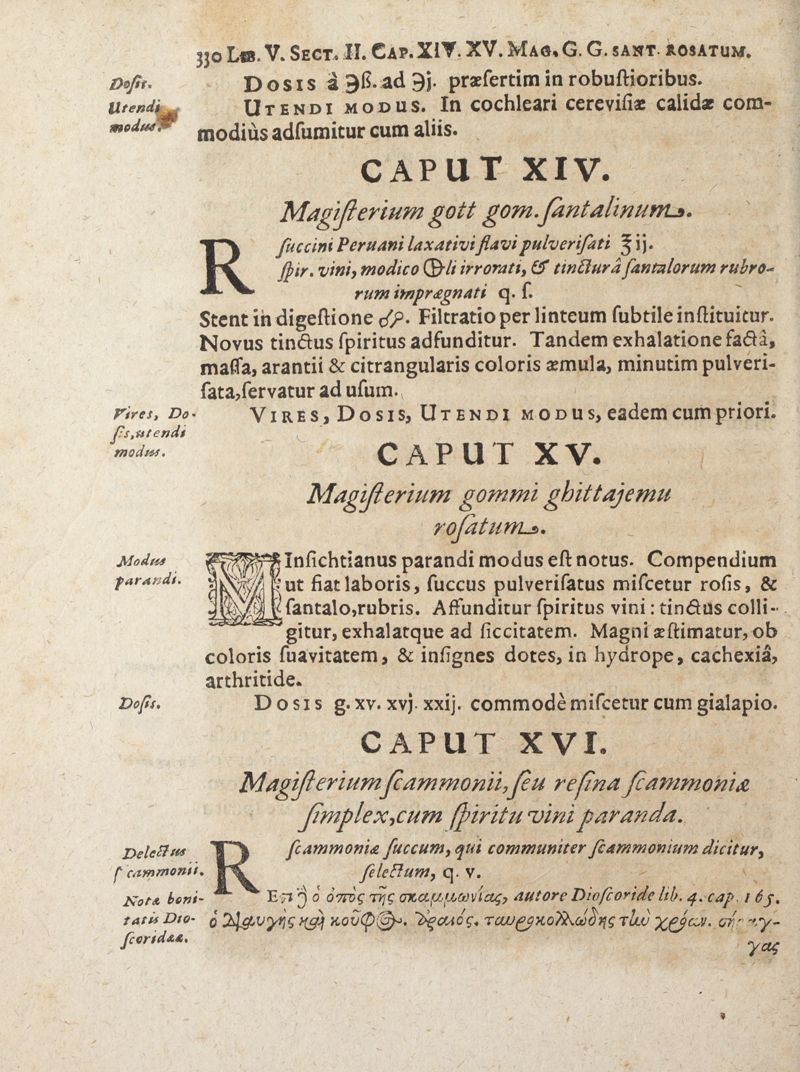 330 LIB. V. SECT. II. CAP. XIV. XV. MAG. G. G. SANT. ROSATUM.
Dosis.
DOSIS à ℈ß. ad ℈j. præsertim in robustioribus.
Utendi modus.
UTENDI MODUS. In cochleari cerevisiæ calidæ com-
modiùs adsumitur cum aliis.
CAPUT XIV.
Magisterium gott gom. santalinum.
℞ succini Peruani laxativi flavi pulverisati ℥ij.
spir. vini, modico 🜕li irrorati, & tincturâ santalorum rubro-
rum imprægnati q. s.
Stent in digestione. Filtratio per linteum subtile instituitur.
Novus tinctus spiritus adfunditur. Tandem exhalatione factâ,
massa, arantii & citrangularis coloris æmula, minutim pulveri-
sata, servatur ad usum.
Vires, Do-
sis, utendi
modus.
VIRES, DOSIS, UTENDI MODUS, eadem cum priori.
CAPUT XV.
Magisterium gommi ghittajemu
rosatum.
Modus
parandi.
MInsichtianus parandi modus est notus. Compendium
ut fiat laboris, succus pulverisatus miscetur rosis, &
santalo, rubris. Affunditur spiritus vini: tinctus colli-
gitur, exhalatque ad siccitatem. Magni æstimatur, ob
coloris suavitatem, & insignes dotes, in hydrope, cachexiâ,
arthritide.
Dosis.
DOSIS g. xv. xvj. xxij. commodè miscetur cum gialapio.
CAPUT XVI.
Magisterium scammonii, seu resina scammoniæ
simplex, cum spiritu vini paranda.
Delectus
scammonii.
℞ scammoniæ succum, qui communiter scammonium dicitur,
selectum, q. v.
Nota boni-
tatis Dio-
scoridæa.
Εϛι ὃ ὁ ὀπὸς τῆς σκαμμωνίας, autore Dioscoride lib. 4. cap. 165.
ὁ διαυγὴς καὶ κοῦφος. ἀραιός. ταυροκολλώδης τὴν χρόαν.
γας